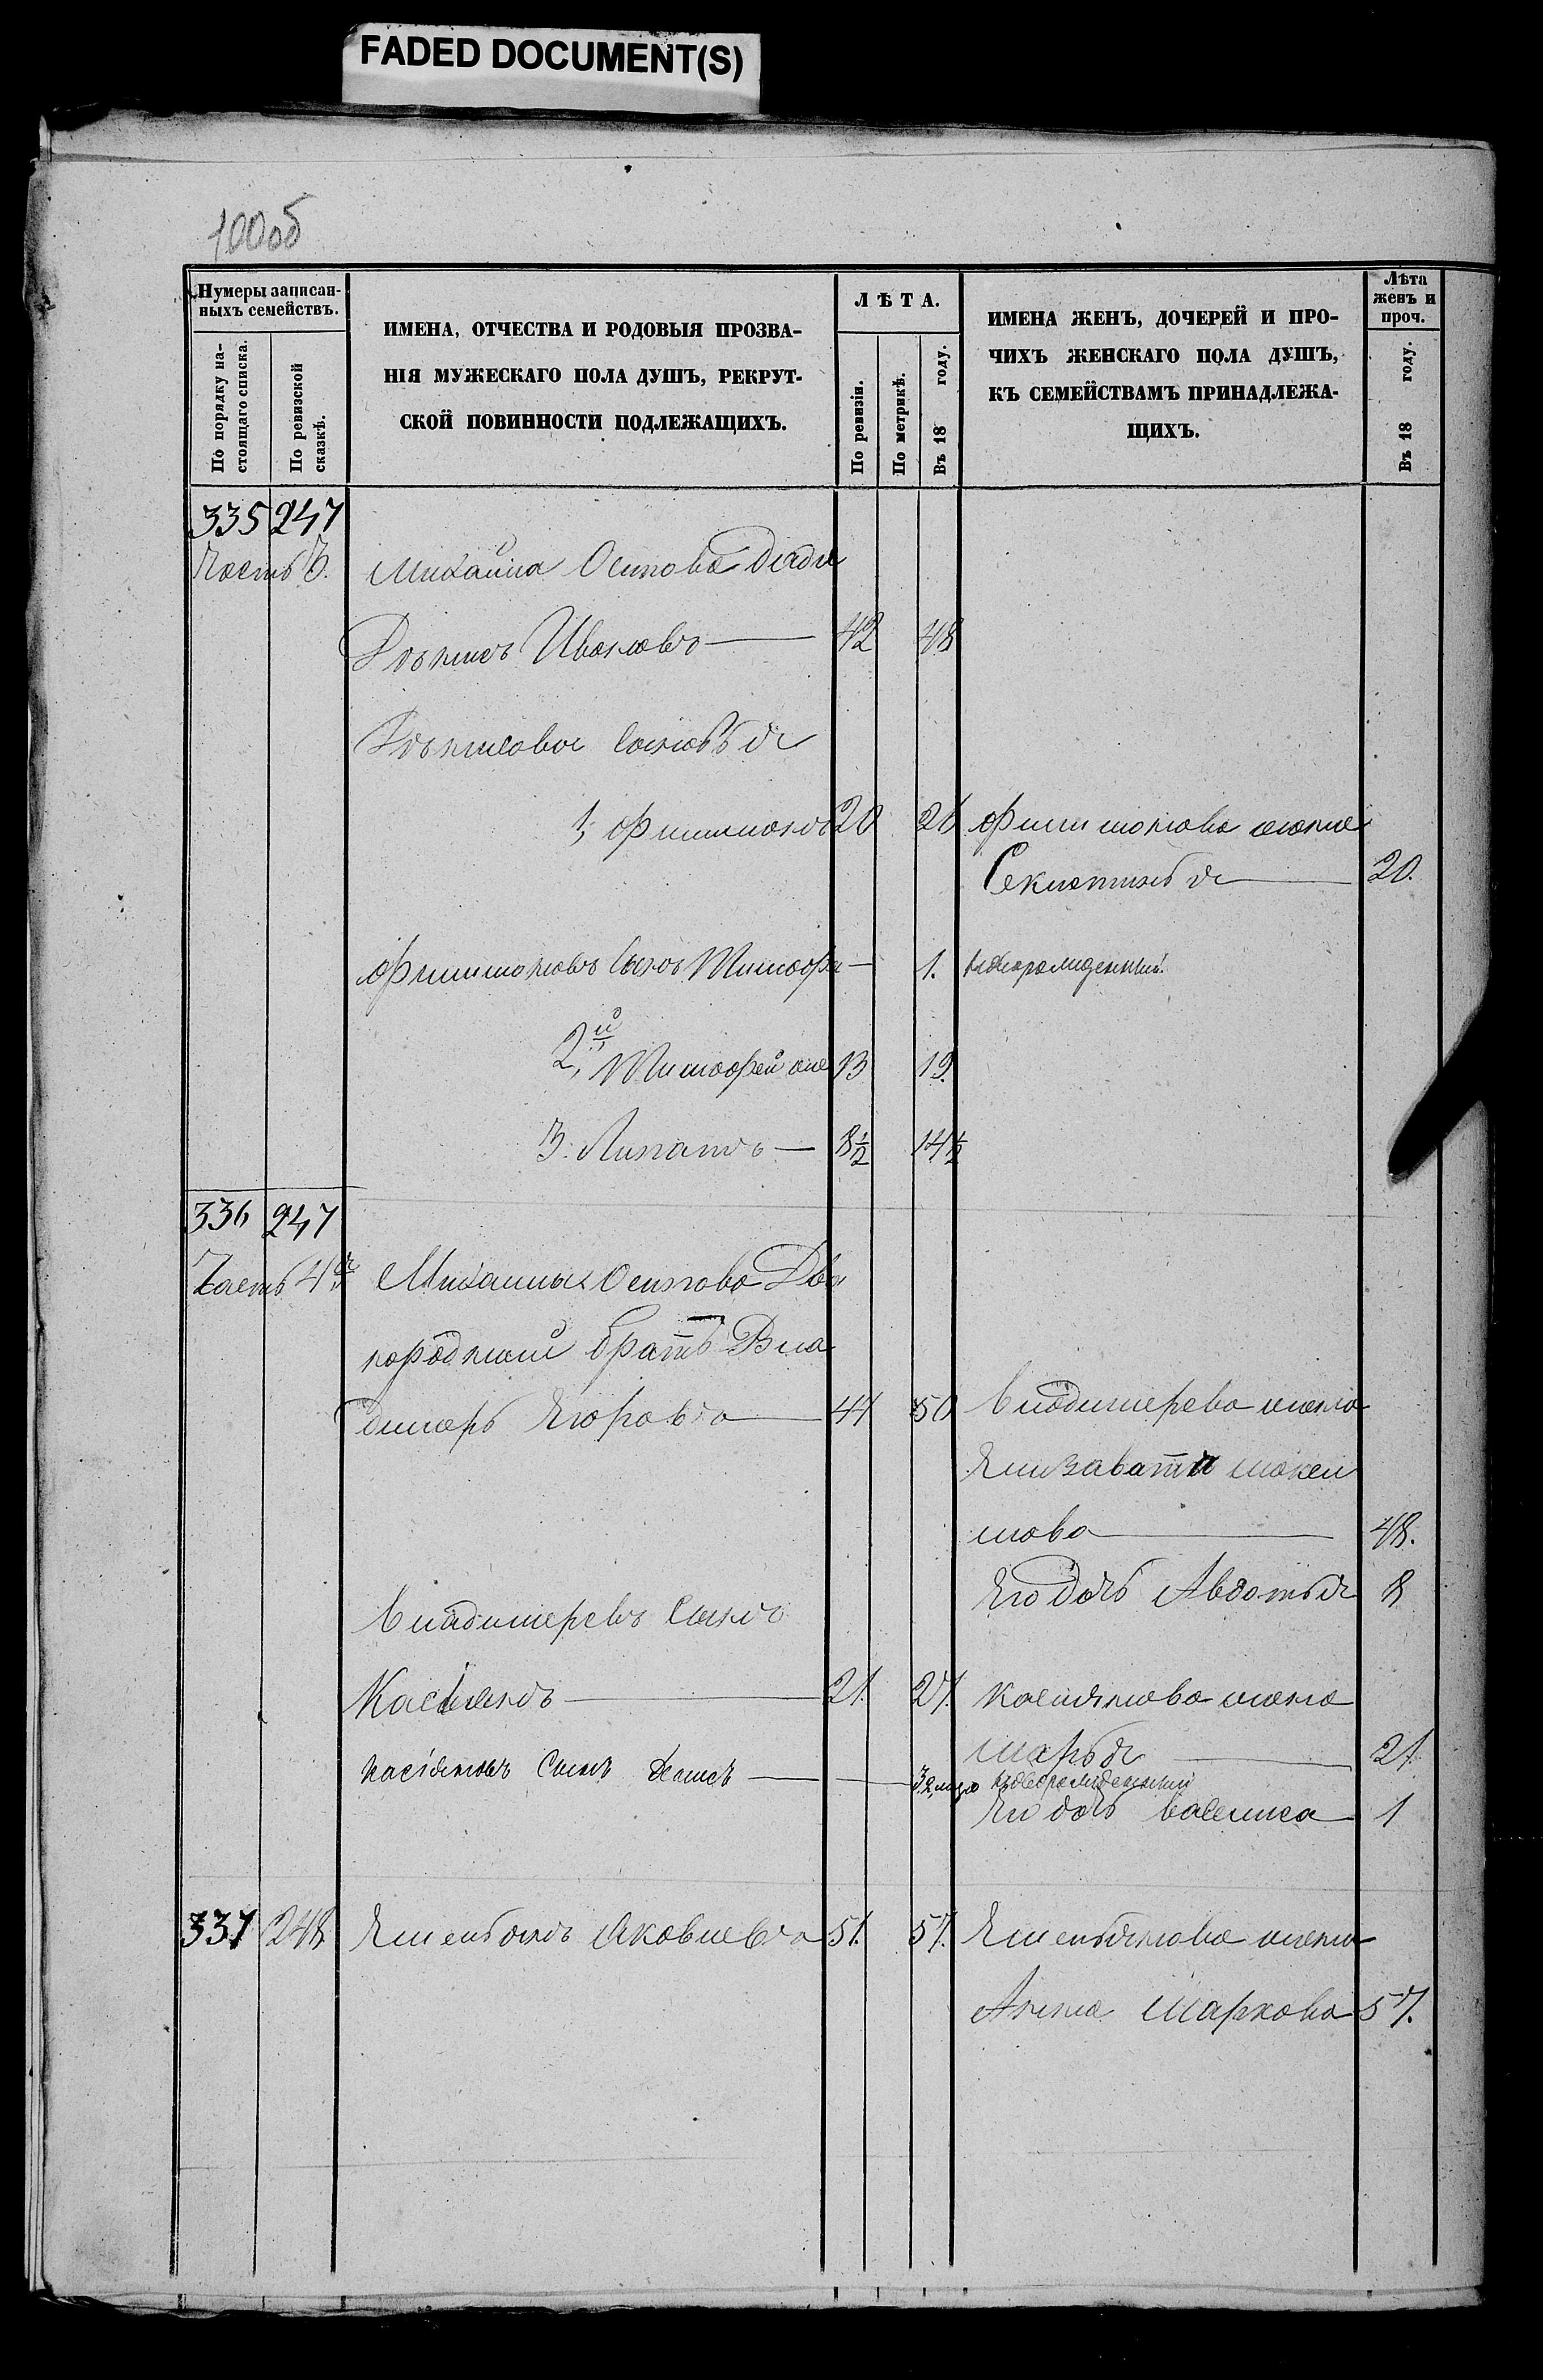 FADED DOCUMENT(S)
100об
Нумеры записан-
ныхъ семействъ.
По порядку на-
стоящаго списка.
По ревизской
сказкѣ.
ИМЕНА, ОТЧЕСТВА И РОДОВЫЯ ПРОЗВА-
НІЯ МУЖЕСКАГО ПОЛА ДУШЪ, РЕКРУТ-
СКОЙ ПОВИННОСТИ ПОДЛЕЖАЩИХЪ.
ЛѢТА.
По ревизіи.
По метрикѣ.
Въ 18 году.
ИМЕНА ЖЕНЪ, ДОЧЕРЕЙ И ПРО-
ЧИХЪ ЖЕНСКАГО ПОЛА ДУШЪ,
КЪ СЕМЕЙСТВАМЪ ПРИНАДЛЕЖА-
ЩИХЪ.
Лѣта
женъ и
проч.
Въ 18 году.
335 247
Часть 3. Михайла Осипова дядя
Ивановъ 42 48
Сыновья
1, Филимонъ 20 26 Филимонова жена
Секлетинья 20.
Филимоновъ Сынъ Тимофей 1. новорожденный
2й, Тимофей 13 19.
3. Липатъ 8½ 14½
336 247
Часть 4я Михаилы Осипова Дво
юродный братъ Вла
димеръ Егоровъ 44 50 Владимерова жена
Елизавата
48.
Его дочь Авдотья 8
Владимеровъ Сынъ
Касьянъ 21. 27. Касиянова жена
Марья 21.
Касіяновъ Сынъ новорожденный
Его дочь Василиса 1
337 248 Емельянъ Яковлевъ 51. 57. Емельянова жена
Анна Маркова 57.